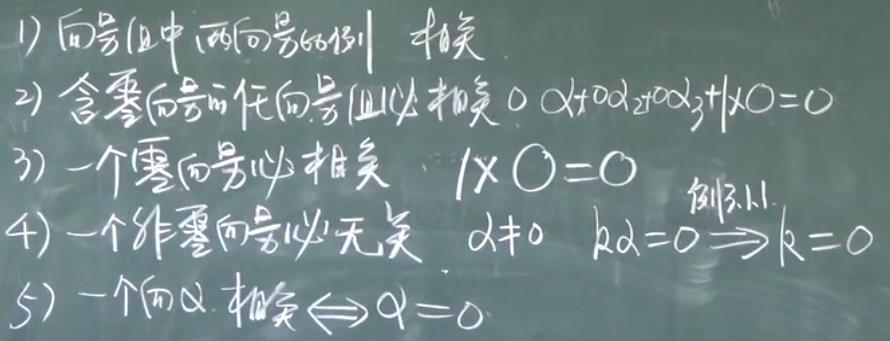 1) 向量组中两向量成比例 相关
2) 含零向量的任向量组必相关 0α1+0α2+0α3+1×0=0
3) 一个零向量必相关 1×0=0
4) 一个非零向量必无关 α≠0 kα=0 ⟹ k=0 例3.1.1.
5) 一个向α 相关⟺α=0